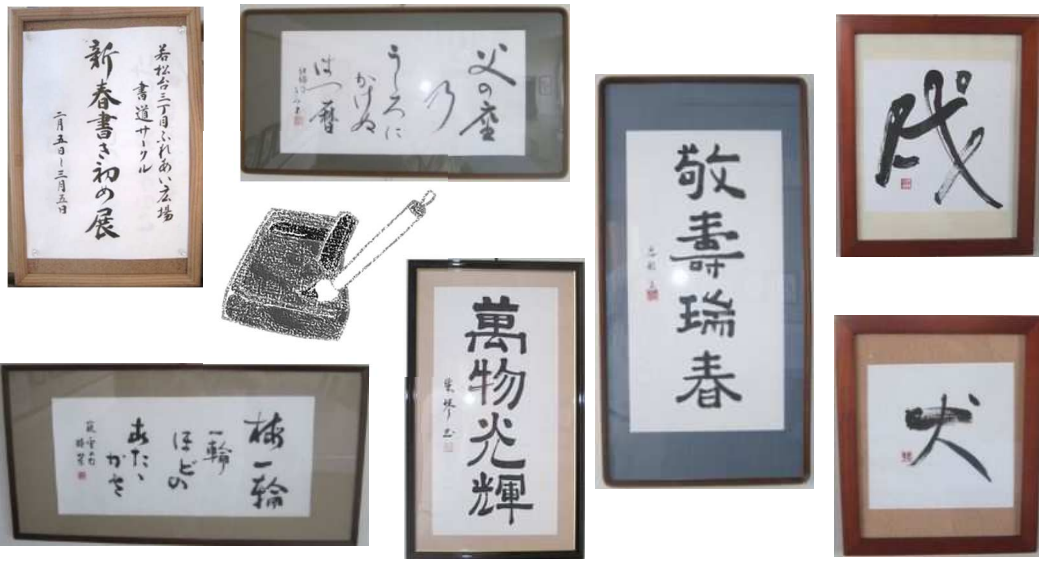 若松台三丁目ふれあい広場
書道サークル
新春書き初め展
二月五日〜三月五日
父の座
乃
うしろに
かけぬ
はつ暦
梅一輪
一輪
ほどの
あたゝ
かさ
萬物光輝
敬壽瑞春
戌
犬